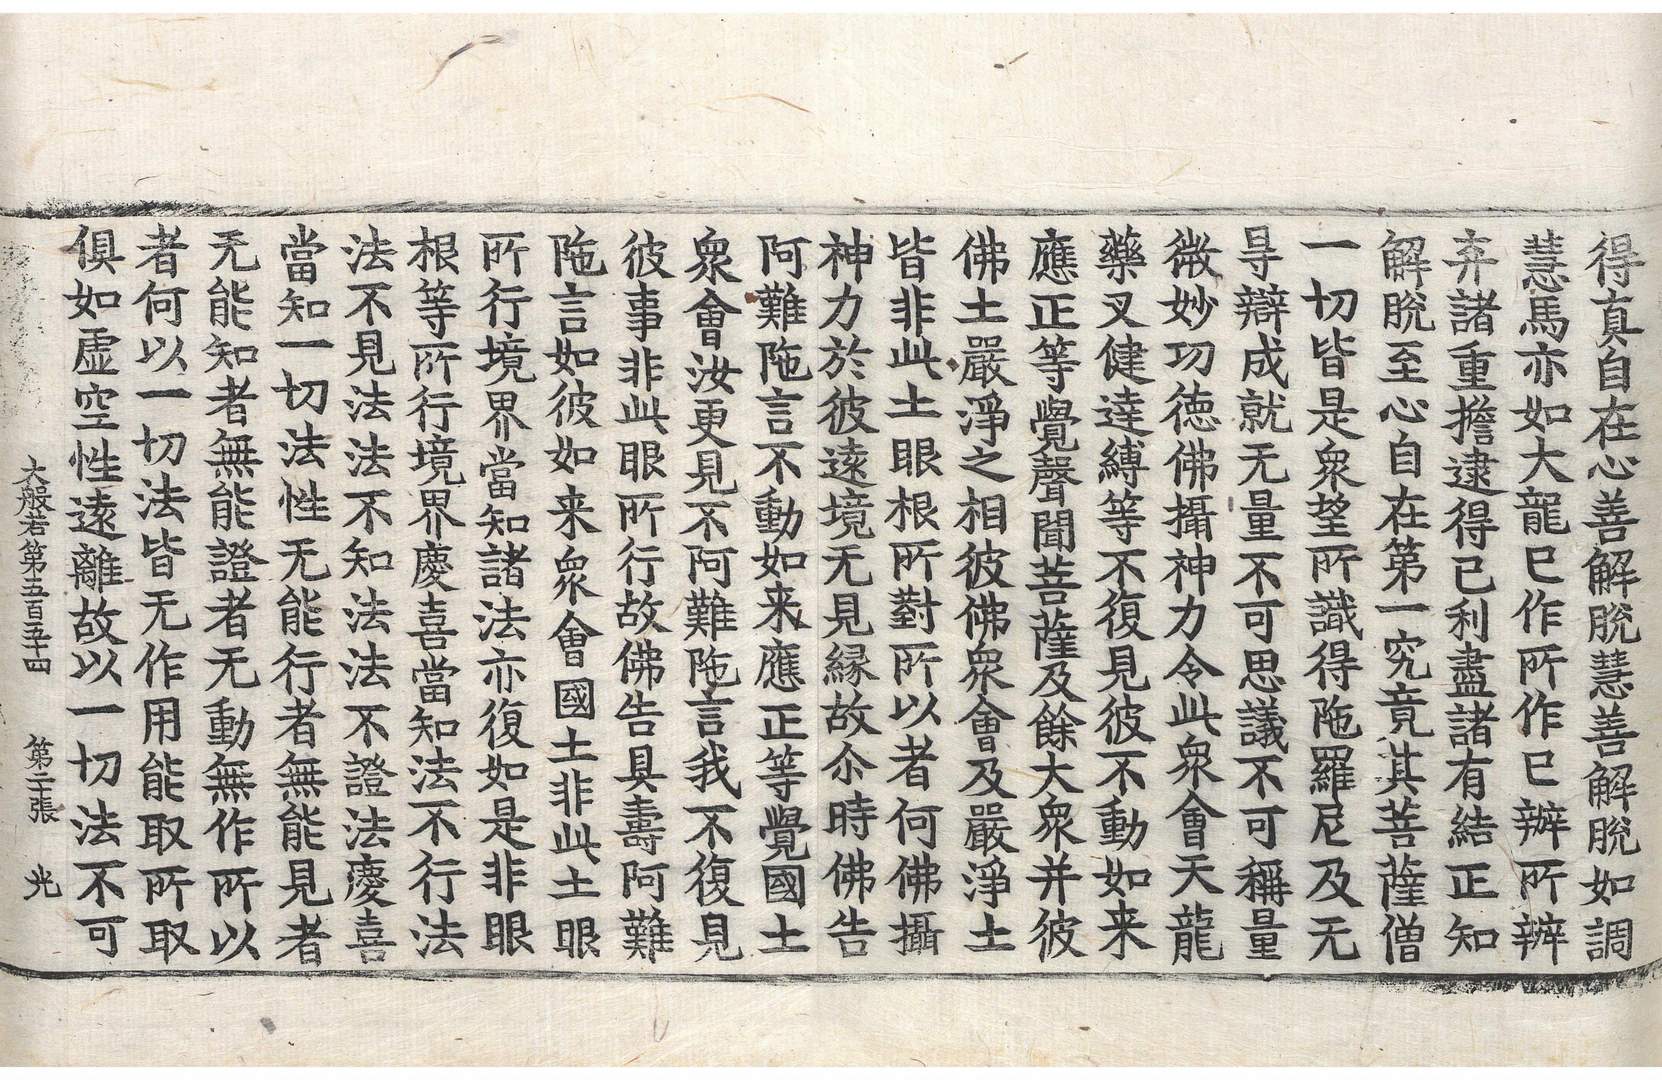 得真自在心善解脫慧善解脫如調
慧馬亦如大龍已作所作已辦所辦
弃諸重擔逮得己利盡諸有結正知
解脫至心自在第一究竟其菩薩僧
一切皆是衆望所識得陁羅尼及无
㝵辯成就无量不可思議不可稱量
微妙功德佛攝神力令此衆會天龍
藥叉健達縛等不復見彼不動如来
應正等覺聲聞菩薩及餘大衆并彼
佛土嚴淨之相彼佛衆會及嚴淨土
皆非此土眼根所對所以者何佛攝
神力於彼遠境无見緣故尒時佛告
阿難陁言不動如来應正等覺國土
衆會汝更見不阿難陁言我不復見
彼事非此眼所行故佛告具壽阿難
陁言如彼如来衆會國土非此土眼
所行境界當知諸法亦復如是非眼
根等所行境界慶喜當知法不行法
法不見法法不知法法不證法慶喜
當知一切法性无能行者無能見者
无能知者無能證者无動無作所以
者何以一切法皆无作用能取所取
俱如虛空性遠離故以一切法不可
大般若第五百五十四 第二十張 光